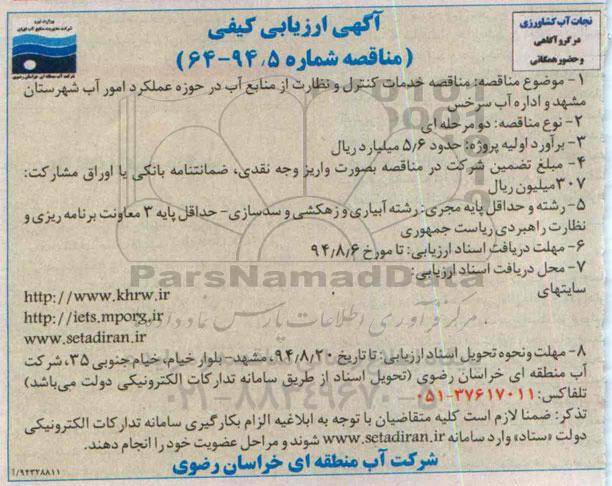 وزارت نیرو
شرکت مدیریت منابع آب ایران
شرکت آب منطقه ای خراسان رضوی
نجات آب کشاورزی
در گرو آگاهی
و حضور همگانی
آگهی ارزیابی کیفی
(مناقصه شماره ۹۴٫۵-۶۴)
۱- موضوع مناقصه: مناقصه خدمات کنترل و نظارت از منابع آب در حوزه عملکرد امور آب شهرستان
مشهد و اداره آب سرخس
۲- نوع مناقصه: دو مرحله ای
۳- برآورد اولیه پروژه: حدود ۵٫۶ میلیارد ریال
۴- مبلغ تضمین شرکت در مناقصه بصورت واریز وجه نقدی، ضمانتنامه بانکی یا اوراق مشارکت:
۳۰۷ میلیون ریال
۵- رشته و حداقل پایه مجری: رشته آبیاری و زهکشی و سدسازی- حداقل پایه ۳ معاونت برنامه ریزی و
نظارت راهبردی ریاست جمهوری
۶- مهلت دریافت اسناد ارزیابی: تا مورخ ۹۴٫۸٫۶
۷- محل دریافت اسناد ارزیابی:
سایتهای
http://www.khrw.ir
http://iets.mporg.ir
www.setadiran.ir
۸- مهلت و نحوه تحویل اسناد ارزیابی: تا تاریخ ۹۴٫۸٫۲۰، مشهد- بلوار خیام، خیام جنوبی ۳۵، شرکت
آب منطقه ای خراسان رضوی (تحویل اسناد از طریق سامانه تدارکات الکترونیکی دولت می‌باشد)
تلفاکس: ۳۷۶۱۷۰۱۱-۰۵۱
تذکر: ضمنا لازم است کلیه متقاضیان با توجه به ابلاغیه الزام بکارگیری سامانه تدارکات الکترونیکی
دولت «ستاد» وارد سامانه www.setadiran.ir شوند و مراحل عضویت خود را انجام دهند.
شرکت آب منطقه ای خراسان رضوی
ParsNamadData
مرکز فرآوری اطلاعات پارس نماد داده
۰۲۱-۸۸۳۴۹۶۷۰-۵